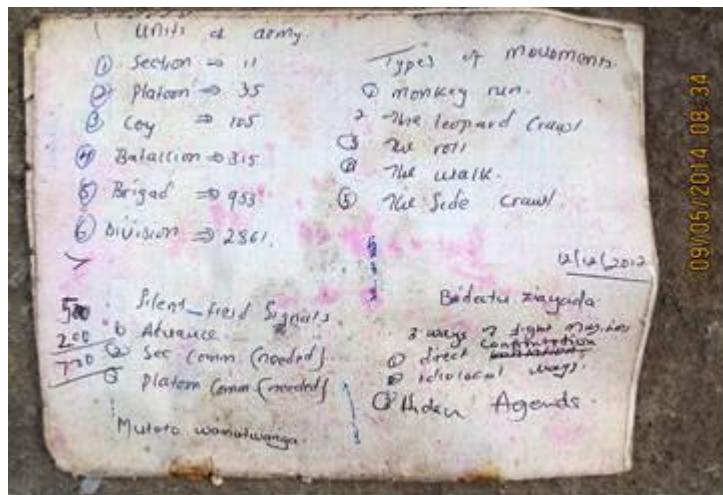 Units of army.
① Section ⇒ 11
② Platoon ⇒ 35
③ Coy ⇒ 105
④ Batallion ⇒ 315
⑤ Brigad ⇒ 953
⑥ Division ⇒ 2861.
Types of movements.
① monkey run.
2 The leopard Crawl
③ The roll
④ The walk.
⑤ The Side Crawl.
12/12/2012
500
200
700
Silent field Signals
① Advance
② Sec Comm (needed)
③ Platoon Comm (needed)
Mutoto wamutwanga.
Bideatu ziayada
3 ways of fight
① direct Confrontation
② ways.
③ Hiden Agends.
09/05/2014 08:34